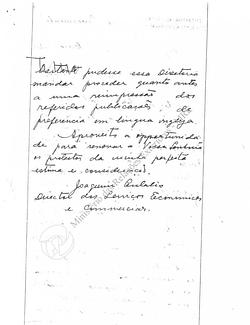 pudesse essa Directoria
mandar proceder quanto antes
a uma reimpressão dos
referidos publicacaões de
preferencia em lingua ingleza.
Aproveito a opportunida
de para renovar a Vossa Senhoria
os protestos da minha perfeita
estima e consideração.
Joaquim Eulalio
Director dos Serviços Economicos
e Commerciaes.